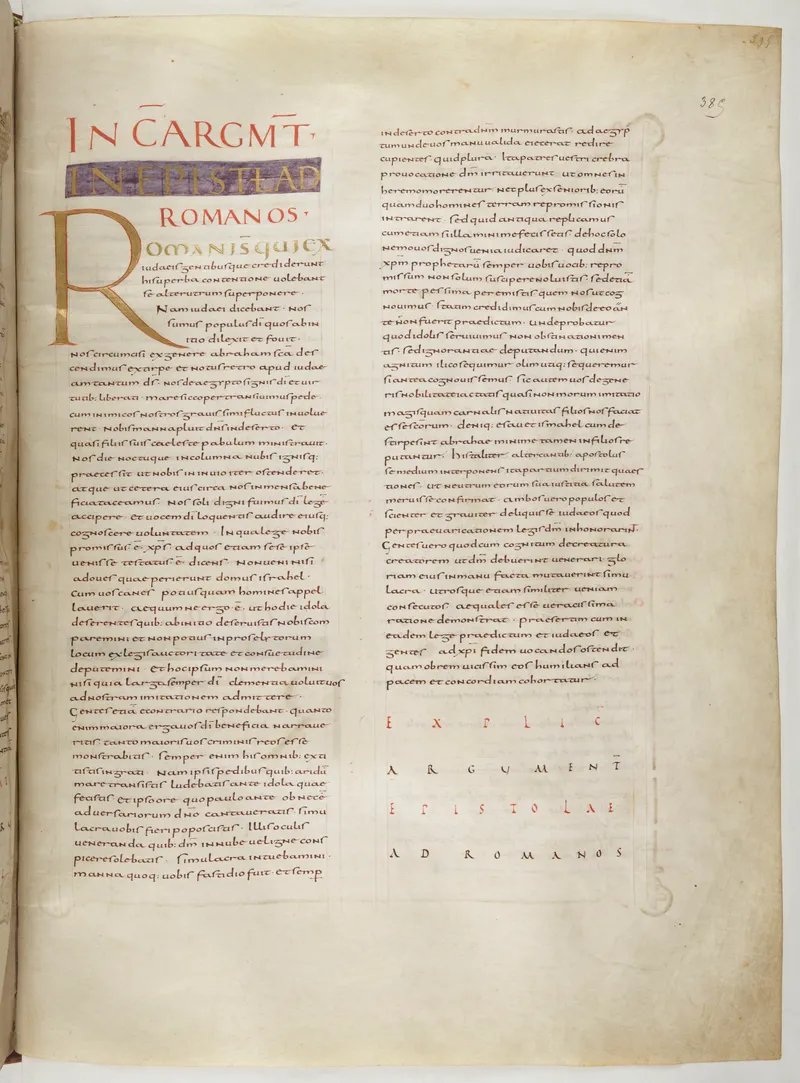 385
INC̅ ARGMT̅·
IN EPIST EAD
ROMANOS·
ROMANISQUIEX
iudaeis gentibusque crediderunt
hi superba contentione uolebant
se alterutrum superponere·
Nam iudaei dicebant· nos
sumus populus di quos ab in
itio dilexit et fouit·
nos circumcisi ex genere abraham sca des
cendimus ex stirpe et notus retro apud iudae
am tantum ds· nos de aegypto signis di et uir
tutib: liberati· mare sicco per transiuimus pede·
cum inimicos nostros grauissimi fluctus inuolue
rent· Nobis manna pluit dns in deserto· et
quasi filiis suis caeleste pabulum ministrauit·
Nos die noctuque in columna nubis ignisq:
praecessit ut nobis in inuio iter ostenderet·
atque ut cetera eius circa nos inmensa bene
ficia taceamus· Nos soli digni fuimus di lege
accipere· et uocem di loquentis audire eiusq:
cognoscere uoluntatem· In qua lege nobis
promissus e· xps· ad quos etiam se se ipse
uenisse testatus e· dicens· Non ueni nisi
ad oues quae perierunt domus israhel·
Cum uos canes potius quam homines appel
lauerit· aequum ne ergo e· ut hodie idola
deserentes quib: ab initio deseruistis nobis com
paremini et non potius in proselytorum
locum ex legis auctoritate et consuetudine
deputemini· et hoc ipsum non merebamini
nisi quia larga semper di clementia uoluit uos
ad nostram imitationem admittere·
Gentes etia e contrario respondebant· quanto
enim maiora erga uos di beneficia narraue
ritis· tanto maioris uos criminis reos esse
monstrabitis· semper enim his omnib: exti
tistis ingrati· Nam ipsis pedibus quib: aridu
mare transistis ludebatis ante idola quae
fecistis et ips o ore quo paulo ante ob nece
aduersariorum dno cantaueratis simu
lacra uobis fieri poposcistis· Illis oculis
ueneranda quib: dm in nube uel igne cons
picere solebatis· simulacra intuebamini·
manna quoq: uobis fastidio fuit· et semp
in deserto contra dnm murmurastis· ad aegyp
tum unde uos manu ualida eiecerat redire
cupientes quid plura· Ita patres uestri crebra
prouocatione dm irritauerunt· ut omnes in
heremo morerentur· nec plus ex seniorib: eoru
quam duo homines terram repromissionis
intrarent· sed quid antiqua replicamus
cum etiam si illa minime fecissetis de hoc solo
nemo uos dignos uenia iudicaret· quod dnm
xpm prophetaru semper uobis uocib: repro
missum non solum suscipere noluistis· sed etia
morte pessima peremistis quem nos ut cog
nouimus statim credidimus cum nobis de eo an
te non fuerit praedictum· unde probatur
quod idolis seruiuimus non obstinationi men
tis· sed ignorantiae deputandum· qui enim
agnitum ilico sequimur olim utiq: sequeremur
si antea cognouissemus· sic autem uos de gene
ris nobilitate iactatis quasi non morum imitatio
magis quam carnalis natiuitas filios nos faciat
esse scorum· deniq: esau et ismahel cum de
stirpe sint abrahae minime tamen in filios re
putantur· his taliter altercantib: apostolus
se medium interponens ita partium dirimit quaes
tiones· ut neutrum eorum sua iustitia salutem
meruisse confirmat· ambos uero populos et
scienter et grauiter deliquisse iudaeos quod
per praeuaricationem legis dm inhonorarint·
Gentes uero quod cum cognitum de creatura
creatorem ut dm debuerint uenerari glo
riam eius in manu facta mutauerint simu
lacra· utrosque etiam similiter ueniam
consecutos aequales esse ueracissima
ratione demonstrat· praesertim cum in
eadem lege praedictum et iudaeos et
gentes ad xpi fidem uocandos ostendit·
quamobrem uicissim eos humilians ad
pacem et concordiam cohortatur·
E X P L I C
A R G U M E N T̅
E P I S T O L A E
A D R O M A N O S